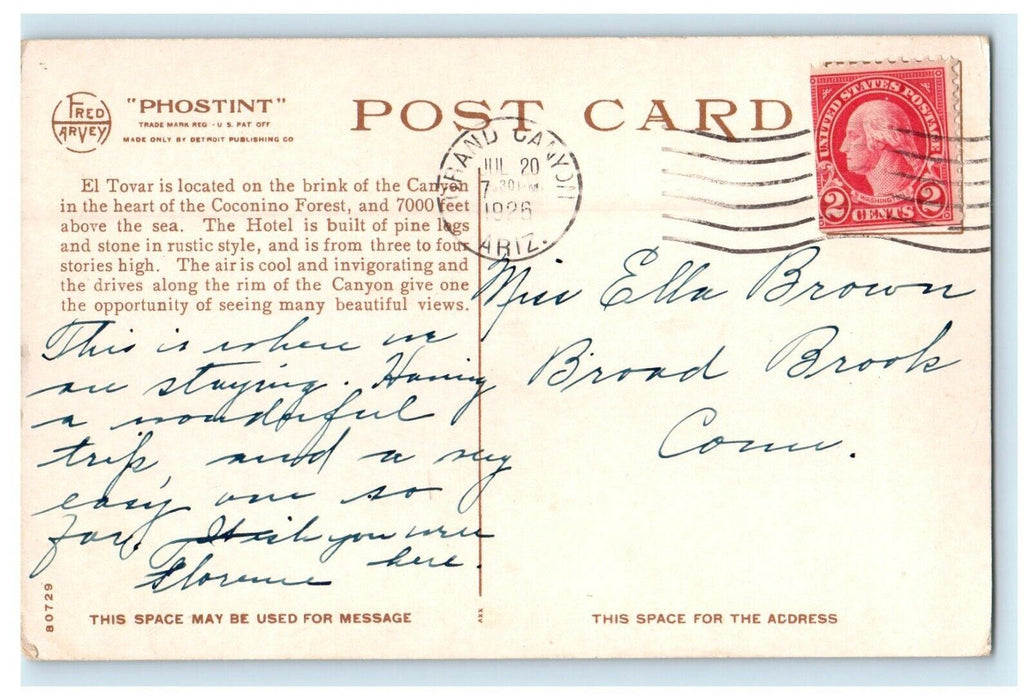 FRED HARVEY
"PHOSTINT"
TRADE MARK REG - U. S. PAT OFF
MADE ONLY BY DETROIT PUBLISHING CO
POST CARD
GRAND CANYON
JUL 20
1926
ARIZ.
UNITED STATES POSTAGE
WASHINGTON
2 CENTS 2
El Tovar is located on the brink of the Canyon
in the heart of the Coconino Forest, and 7000 feet
above the sea. The Hotel is built of pine logs
and stone in rustic style, and is from three to four
stories high. The air is cool and invigorating and
the drives along the rim of the Canyon give one
the opportunity of seeing many beautiful views.
This is where we
are staying. Having
a wonderful
trip and a very
easy one so
far. Wish you were
here.
Florence
Miss Ella Brown
Broad Brook
Conn.
80729
THIS SPACE MAY BE USED FOR MESSAGE
THIS SPACE FOR THE ADDRESS